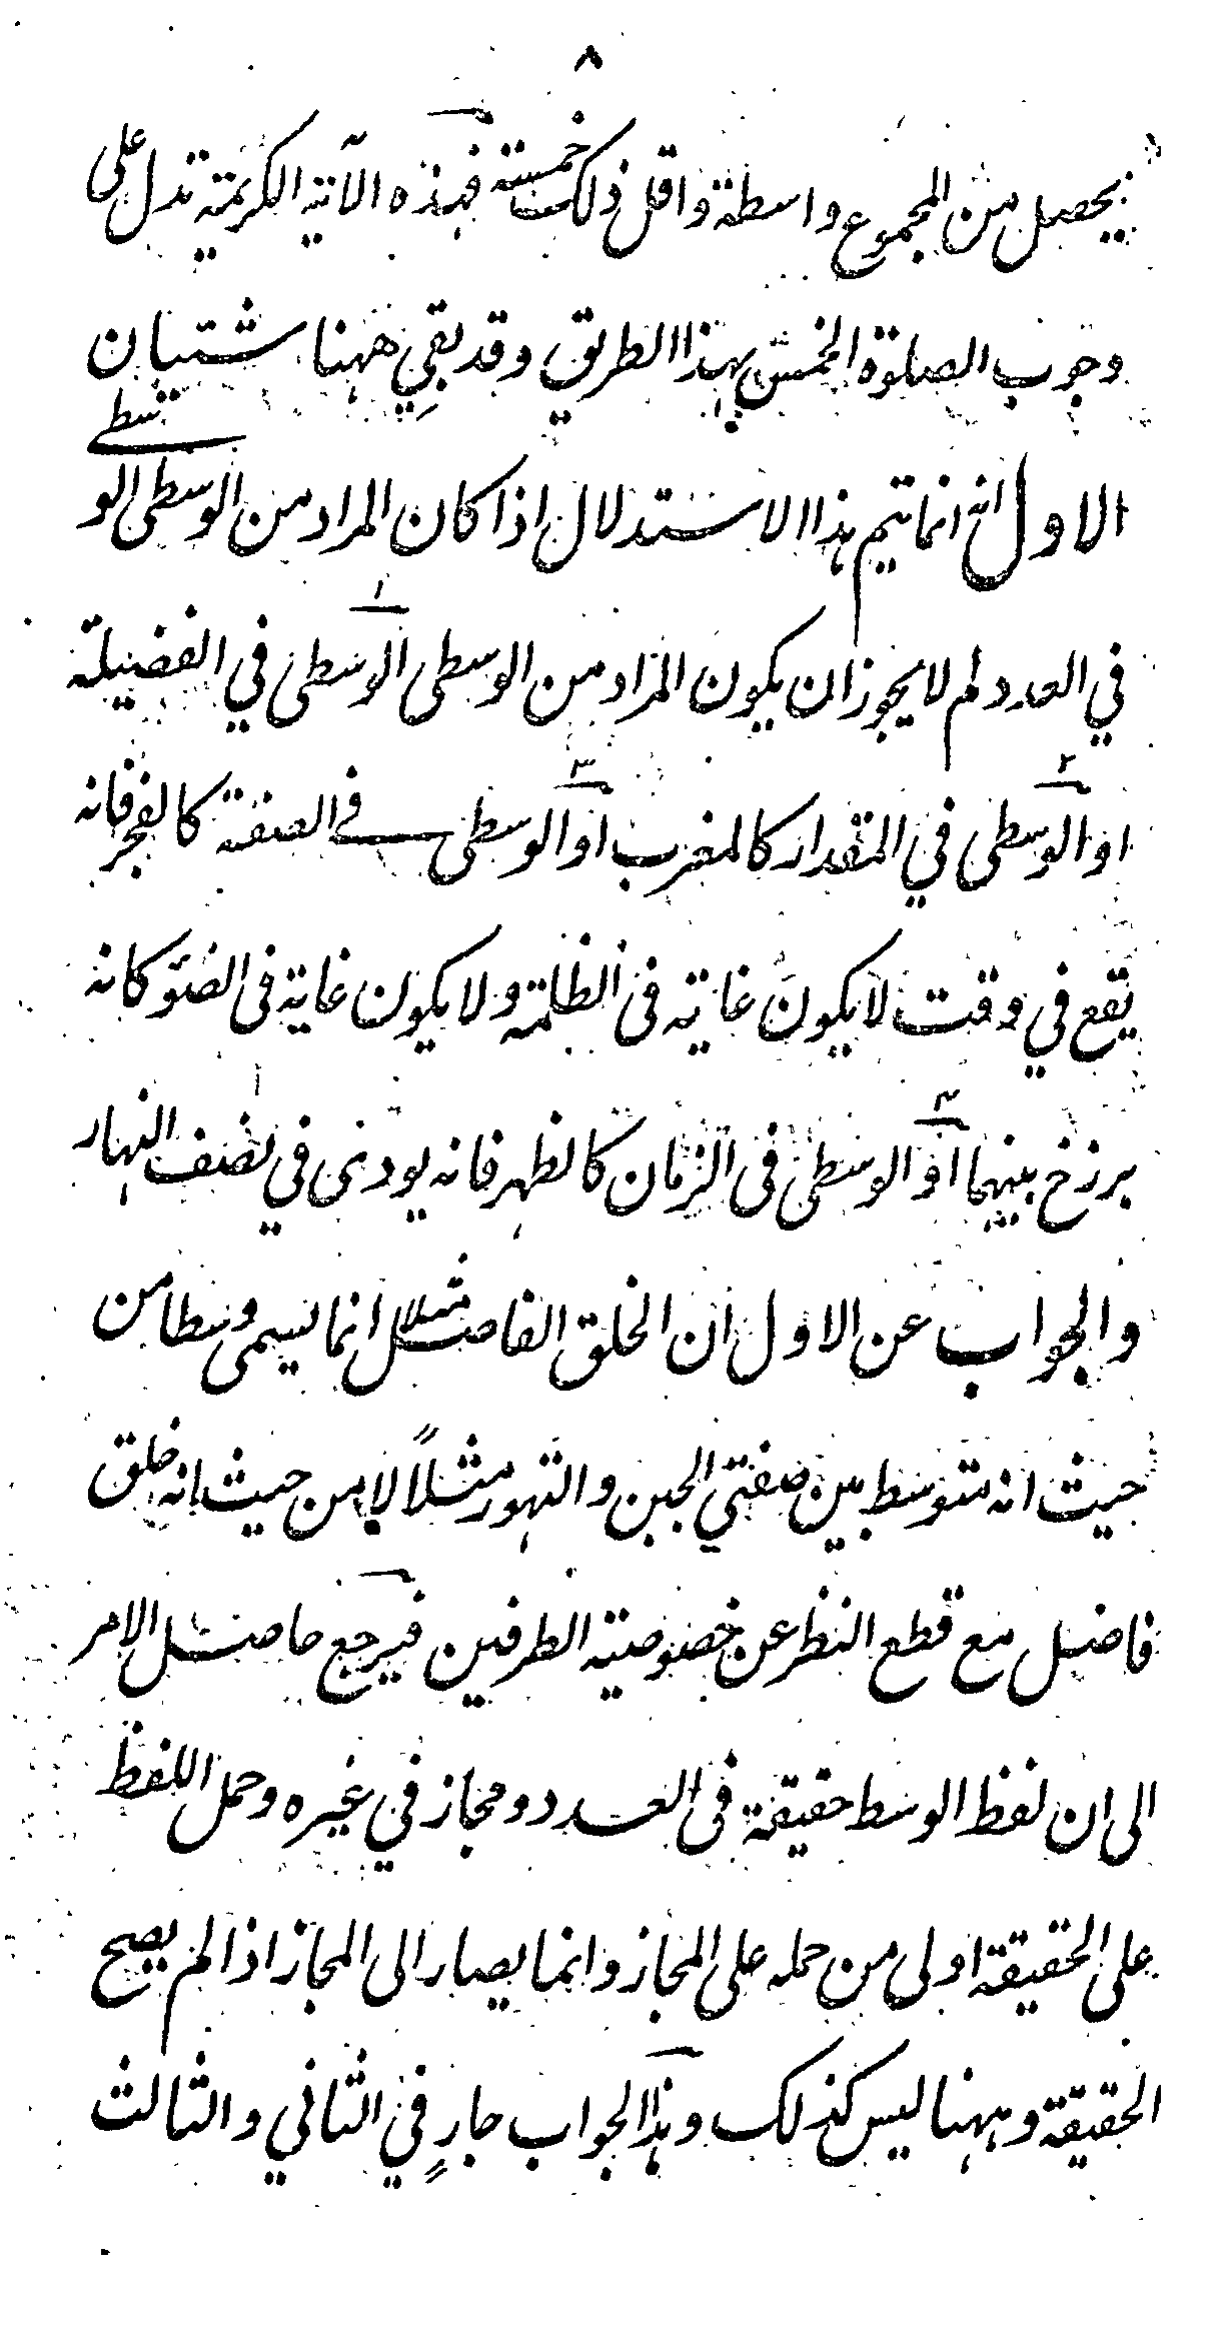 ٨
يحصل من المجموع واسطة واقل ذلك خمسة فهذه الآية الكريمة تدل على
وجوب الصلوة الخمس بهذا الطريق وقد بقي ههنا شتبان
الاول انه انما يتم هذا الاستدلال اذا كان المراد من الوسطى الوسطى
في العدد لم لا يجوز ان يكون المراد من الوسطى الوسطى في الفضيلة
او الوسطى في المقدار كالمغرب او الوسطى في الصفة كالفجر فانه
يقع في وقت لا يكون غاية في الظلمة ولا يكون غاية في الضوء كانه
برزخ بينهما او الوسطى في الزمان كالظهر فانه يودى في نصف النهار
والجواب عن الاول ان الخلق الفاضل مثلا انما يسمى وسطا من
حيث انه متوسط بين صفتي الجبن والتهور مثلاً لا من حيث انه خلق
فاضل مع قطع النظر عن خصوصية الطرفين فيرجع حاصل الامر
الى ان لفظ الوسط حقيقة في العدد ومجاز في غيره وحمل اللفظ
على الحقيقة اولى من حمله على المجاز وانما يصار الى المجاز اذا لم يصح
الحقيقة وههنا ليس كذلك وهذا الجواب جارٍ في الثاني والثالث